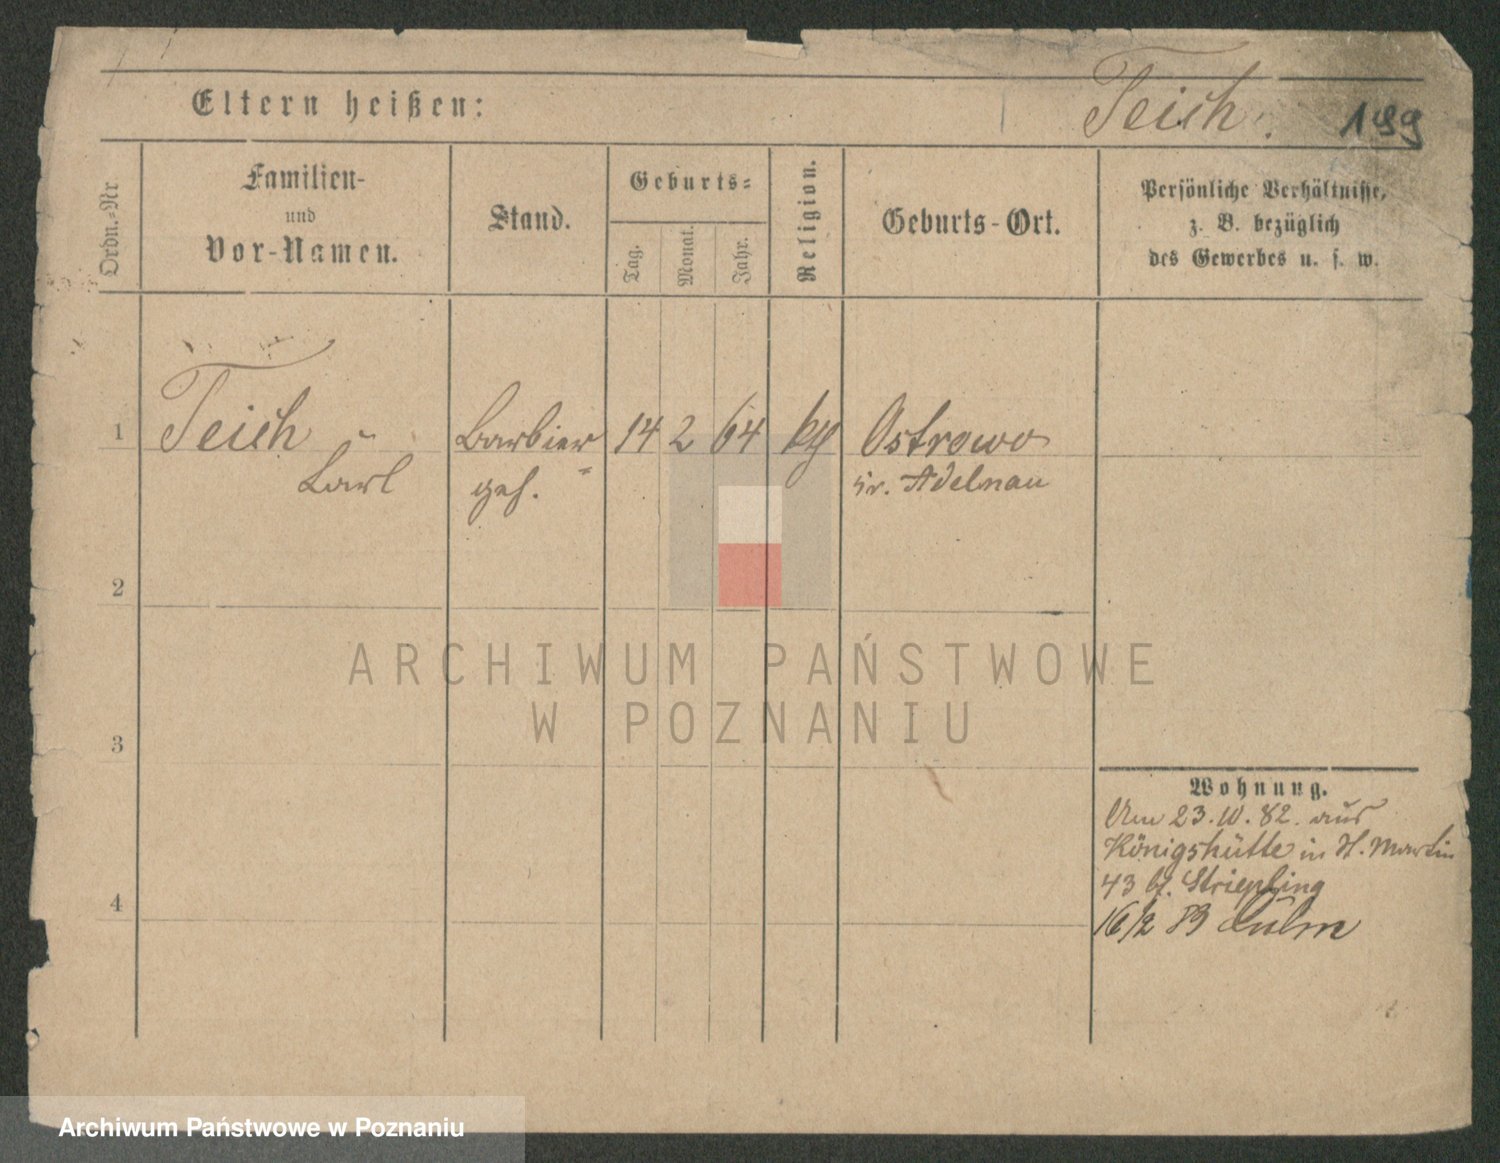 Eltern heißen:
Teich.
199
Ordn.-Nr
Familien-
und
Vor-Namen.
Stand.
Geburts-
Tag.
Monat.
Jahr.
Religion.
Geburts-Ort.
Persönliche Verhältnisse,
z. B. bezüglich
des Gewerbes u. s. w.
1
Teich
Carl
Barbier
geh.
14 2 64
Ostrowo
Kr. Adelnau
2
3
4
Wohnung.
Am 23. 10. 82. aus
Königshütte in St. Martin
43 bei Striepling
16/2 83 Culm
ARCHIWUM PAŃSTWOWE
W POZNANIU
Archiwum Państwowe w Poznaniu